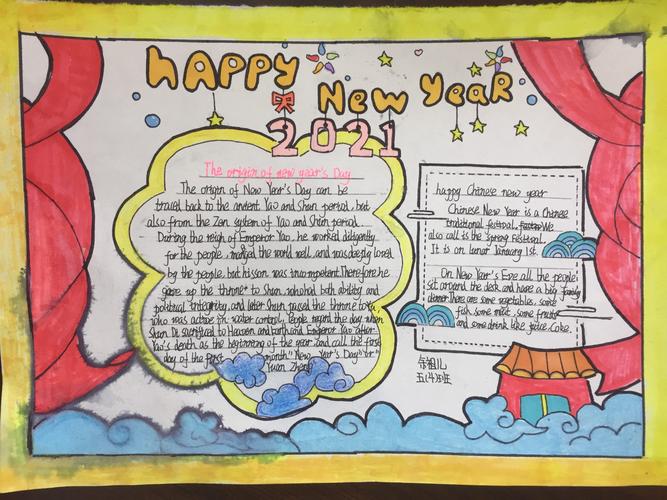 HAPPY New YeaR
2021
The origin of new year's Day
The origin of New Year's Day can be
travel back to the ancient Yao and Shun period, but
also from the Zen system of Yao and Shun period.
During the reign of Emperor Yao, he worked diligently
for the people, managed the world well, and was deeply loved
by the people, but his son was incompetent. Therefore he
gave up the throne to Shun, who had both ability and
political integrity, and later Shun passed the throne to Yu
who was active in water control. People regard the day when
Shun Di sacrificed to Heaven and Earth and Emperor Yao after
Yao's death as the beginning of the year and call the first
day of the first month "New Year's Day" or "
Yuan Zheng"
happy Chinese new year
Chinese New Year is a Chinese
traditional festival. We
also call is the Spring Festival.
It is on lunar January 1st.
On New Year's Eve all the people
sit around the desk and have a big family
dinner. There are some vegetables, some
fish, some meat, some fruits
and some drink like juice, Coke.
五(4)班